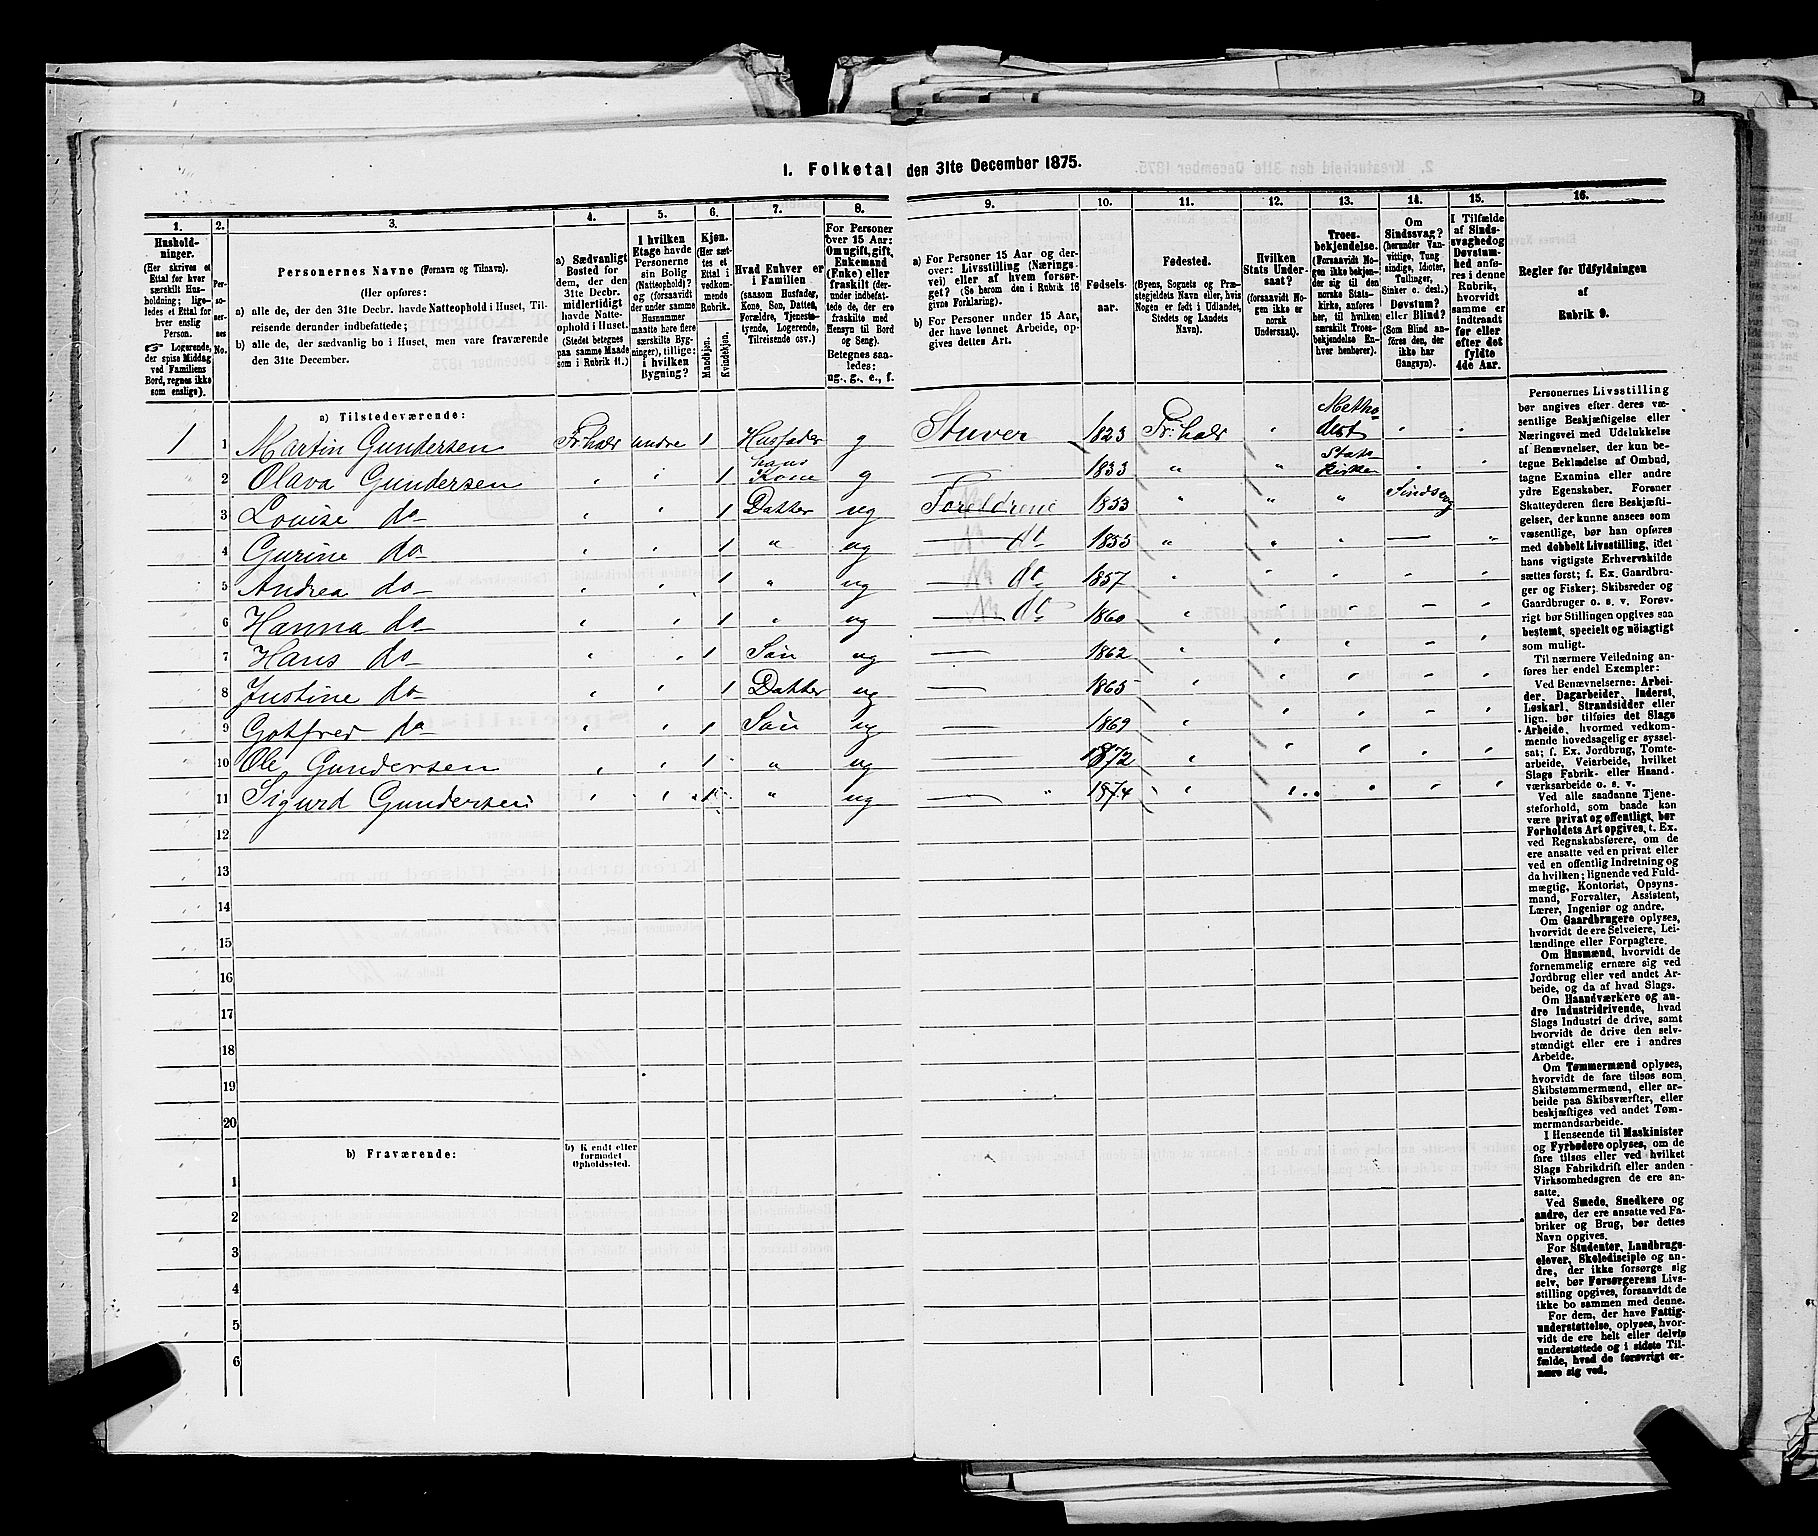 I. Folketal den 31te December 1875.
1. 2. 3. 4. 5. 6. 7. 8. 9. 10. 11. 12. 13. 14. 15. 16.
Hushold-
ninger.
(Her skrives et
Ettal for hver
særskilt Hus-
holdning; lige-
ledes et Ettal
for hver
enslig
Person.
Logerende,
der spise Middag
ved Familiens
Bord, regnes ikke
som enslige).
Per-
so-
ner-
nes
No.
Personernes Navne (Fornavn og Tilnavn).
(Her opføres:
a) alle de, der den 31te Decbr. havde Natteophold i Huset, Til-
reisende derunder indbefattede;
b) alle de, der sædvanlig bo i Huset, men vare fraværende
den 31te December.
a) Sædvanligt
Bosted for
dem, der den
31te Decbr.
midlertidigt
havde Natte-
ophold i Huset.
(Stedet betegnes
paa samme Maade
som i Rubrik 11.)
I hvilken
Etage havde
Personerne
sin Bolig
(Natteophold)?
og (forsaavidt
der under samme
Husnummer
maatte høre flere
særskilte Byg-
ninger), tillige:
i hvilken
Bygning?
Kjøn.
(Her sæt-
tes et
Ettal i
vedkom-
mende
Rubrik.
Mandkjøn.
Kvindekjøn.
Hvad Enhver er
i Familien
(saasom Husfader,
Kone, Søn, Datter,
Forældre, Tjeneste-
tyende, Logerende,
Tilreisende osv.)
For Personer
over 15 Aar:
Om ugift, gift,
Enkemand
(Enke) eller
fraskilt (der-
under indbefat-
tede de, der ere
fraskilte med
Hensyn til Bord
og Seng).
Betegnes saa-
ledes:
ug., g., e., f.
a) For Personer 15 Aar og der-
over: Livsstilling (Nærings-
vei) eller af hvem forsør-
get? (Se herom den i Rubrik 16
givne Forklaring).
b) For Personer under 15 Aar,
der have lønnet Arbeide, op-
gives dettes Art.
Fødsels-
aar.
Fødested.
(Byens, Sognets og Præ-
stegjeldets Navn eller, hvis
Nogen er født i Udlandet,
Stedets og Landets
Navn).
Hvilken
Stats Under-
saat?
(forsaavidt No-
gen ikke er
norsk
Undersaat).
Troes-
bekjendelse.
(Forsaavidt No-
gen ikke bekjen-
der sig til den
norske Stats-
kirke, anføres
her, til hvilken
særskilt Troes-
bekjendelse En-
hver henhører).
Om
Sindssvag?
(herunder Van-
vittige, Tung-
sindige, Idioter,
Tullinger,
Sinker o. desl.)
Døvstum?
eller Blind?
(Som Blind an-
føres den, der
ikke har
Gangsyn).
I Tilfælde
af Sinds-
svaghed og
Døvstum-
hed anfø-
res i denne
Rubrik,
hvorvidt
samme er
indtraadt
før eller
efter det
fyldte
4de Aar.
Regler for Udfyldningen
af
Rubrik 9.
a) Tilstedeværende:
1 1 Martin Gundersen Fr:hals undre 1 Husfader g Stuver 1823 Fr:hals Methodist
2 Olava Gundersen 1 hans Kone g 1833 " " Stats Kirken
3 Louise do 1 Datter ug Foreldrene 1853 " " " Sindsvag
4 Gurine do 1 " ug dt 1855 "
5 Andrea do 1 " ug dt 1857
6 Hanna do 1 " ug dt 1860
7 Hans do 1 Søn ug 1862
8 Justine do 1 Datter ug 1865
9 Gotfred do 1 Søn ug 1869
10 Ole Gundersen 1 " ug 1872
11 Sigurd Gundersen 1 " ug 1874
12
13
14
15
16
17
18
19
20
b) Fraværende: b) Kjendt eller
formodet
Opholdssted.
1
2
3
4
5
6
Personernes Livsstilling
bør angives efter deres væ-
sentlige Beskjæftigelse eller
Næringsvei med Udelukkelse
af Benævnelser, der kun be-
tegne Beklædelse af Ombud,
tagne Examina eller andre
ydre Egenskaber. Forener
Skatteyderen flere Beskjæfti-
gelser, der kunne ansees som
væsentlige, bør han opføres
med dobbelt Livsstilling, idet
hans vigtigste Erhvervskilde
sættes først; f. Ex. Gaardbru-
ger og Fisker; Skibsreder og
Gaardbruger o. s. v. Forøv-
rigt bør Stillingen opgives saa
bestemt, specielt og nøiagtigt
som muligt.
Til nærmere Veiledning an-
føres her endel Exempler:
Ved Benævnelserne: Arbei-
der, Dagarbeider, Inderst,
Løskarl, Strandsidder eller
lign. bør tilføies det Slags
Arbeide, hvormed vedkom-
mende hovedsagelig er syssel-
sat; f. Ex. Jordbrug, Tomte-
arbeide, Veiarbeide, hvilket
Slags Fabrik- eller Haand-
værksarbeide o. s. v.
Ved alle saadanne Tjene-
steforhold, som baade kan
være privat og offentligt, bør
Forholdets Art opgives, t. Ex.
ved Regnskabsførere, om de
ere ansatte ved en privat eller
ved en offentlig Indretning og
da hvilken; lignende ved Fuld-
mægtig, Kontorist, Opsyns-
mand, Forvalter, Assistent,
Lærer, Ingeniør og andre.
Om Gaardbrugere oplyses,
hvorvidt de ere Selveiere, Lei-
lændinge eller Forpagtere.
Om Husmænd, hvorvidt de
fornemmelig ernære sig ved
Jordbrug eller ved andet Ar-
beide, og da af hvad Slags.
Om Haandværkere og an-
dre Industridrivende, hvad
Slags Industri de drive, samt
hvorvidt de drive den selv-
stændigt eller ere i andres
Arbeide.
Om Tømmermænd oplyses,
hvorvidt de fare tilsøs som
Skibstømmermænd, eller ar-
beide paa Skibsværfter, eller
beskjæftiges ved andet Tøm-
mermandsarbeide.
I Henseende til Maskinister
og Fyrbødere oplyses, om de
fare tilsøs eller ved hvilket
Slags Fabrikdrift eller anden
Virksomhedsgren de ere an-
satte.
Ved Smede, Snedkere og
andre, der ere ansatte ved Fa-
briker og Brug, bør dettes
Navn opgives.
For Studenter, Landbrugs-
elever, Skoledisciple og an-
dre, der ikke forsørge sig
selv, bør Forsørgerens Livs-
stilling opgives, forsaavidt de
ikke bo sammen med denne.
For dem, der have Fattig-
understøttelse, oplyses, hvor-
vidt de ere helt eller delvis
understøttede og i sidste Til-
fælde, hvad de forøvrigt er-
nære sig ved.